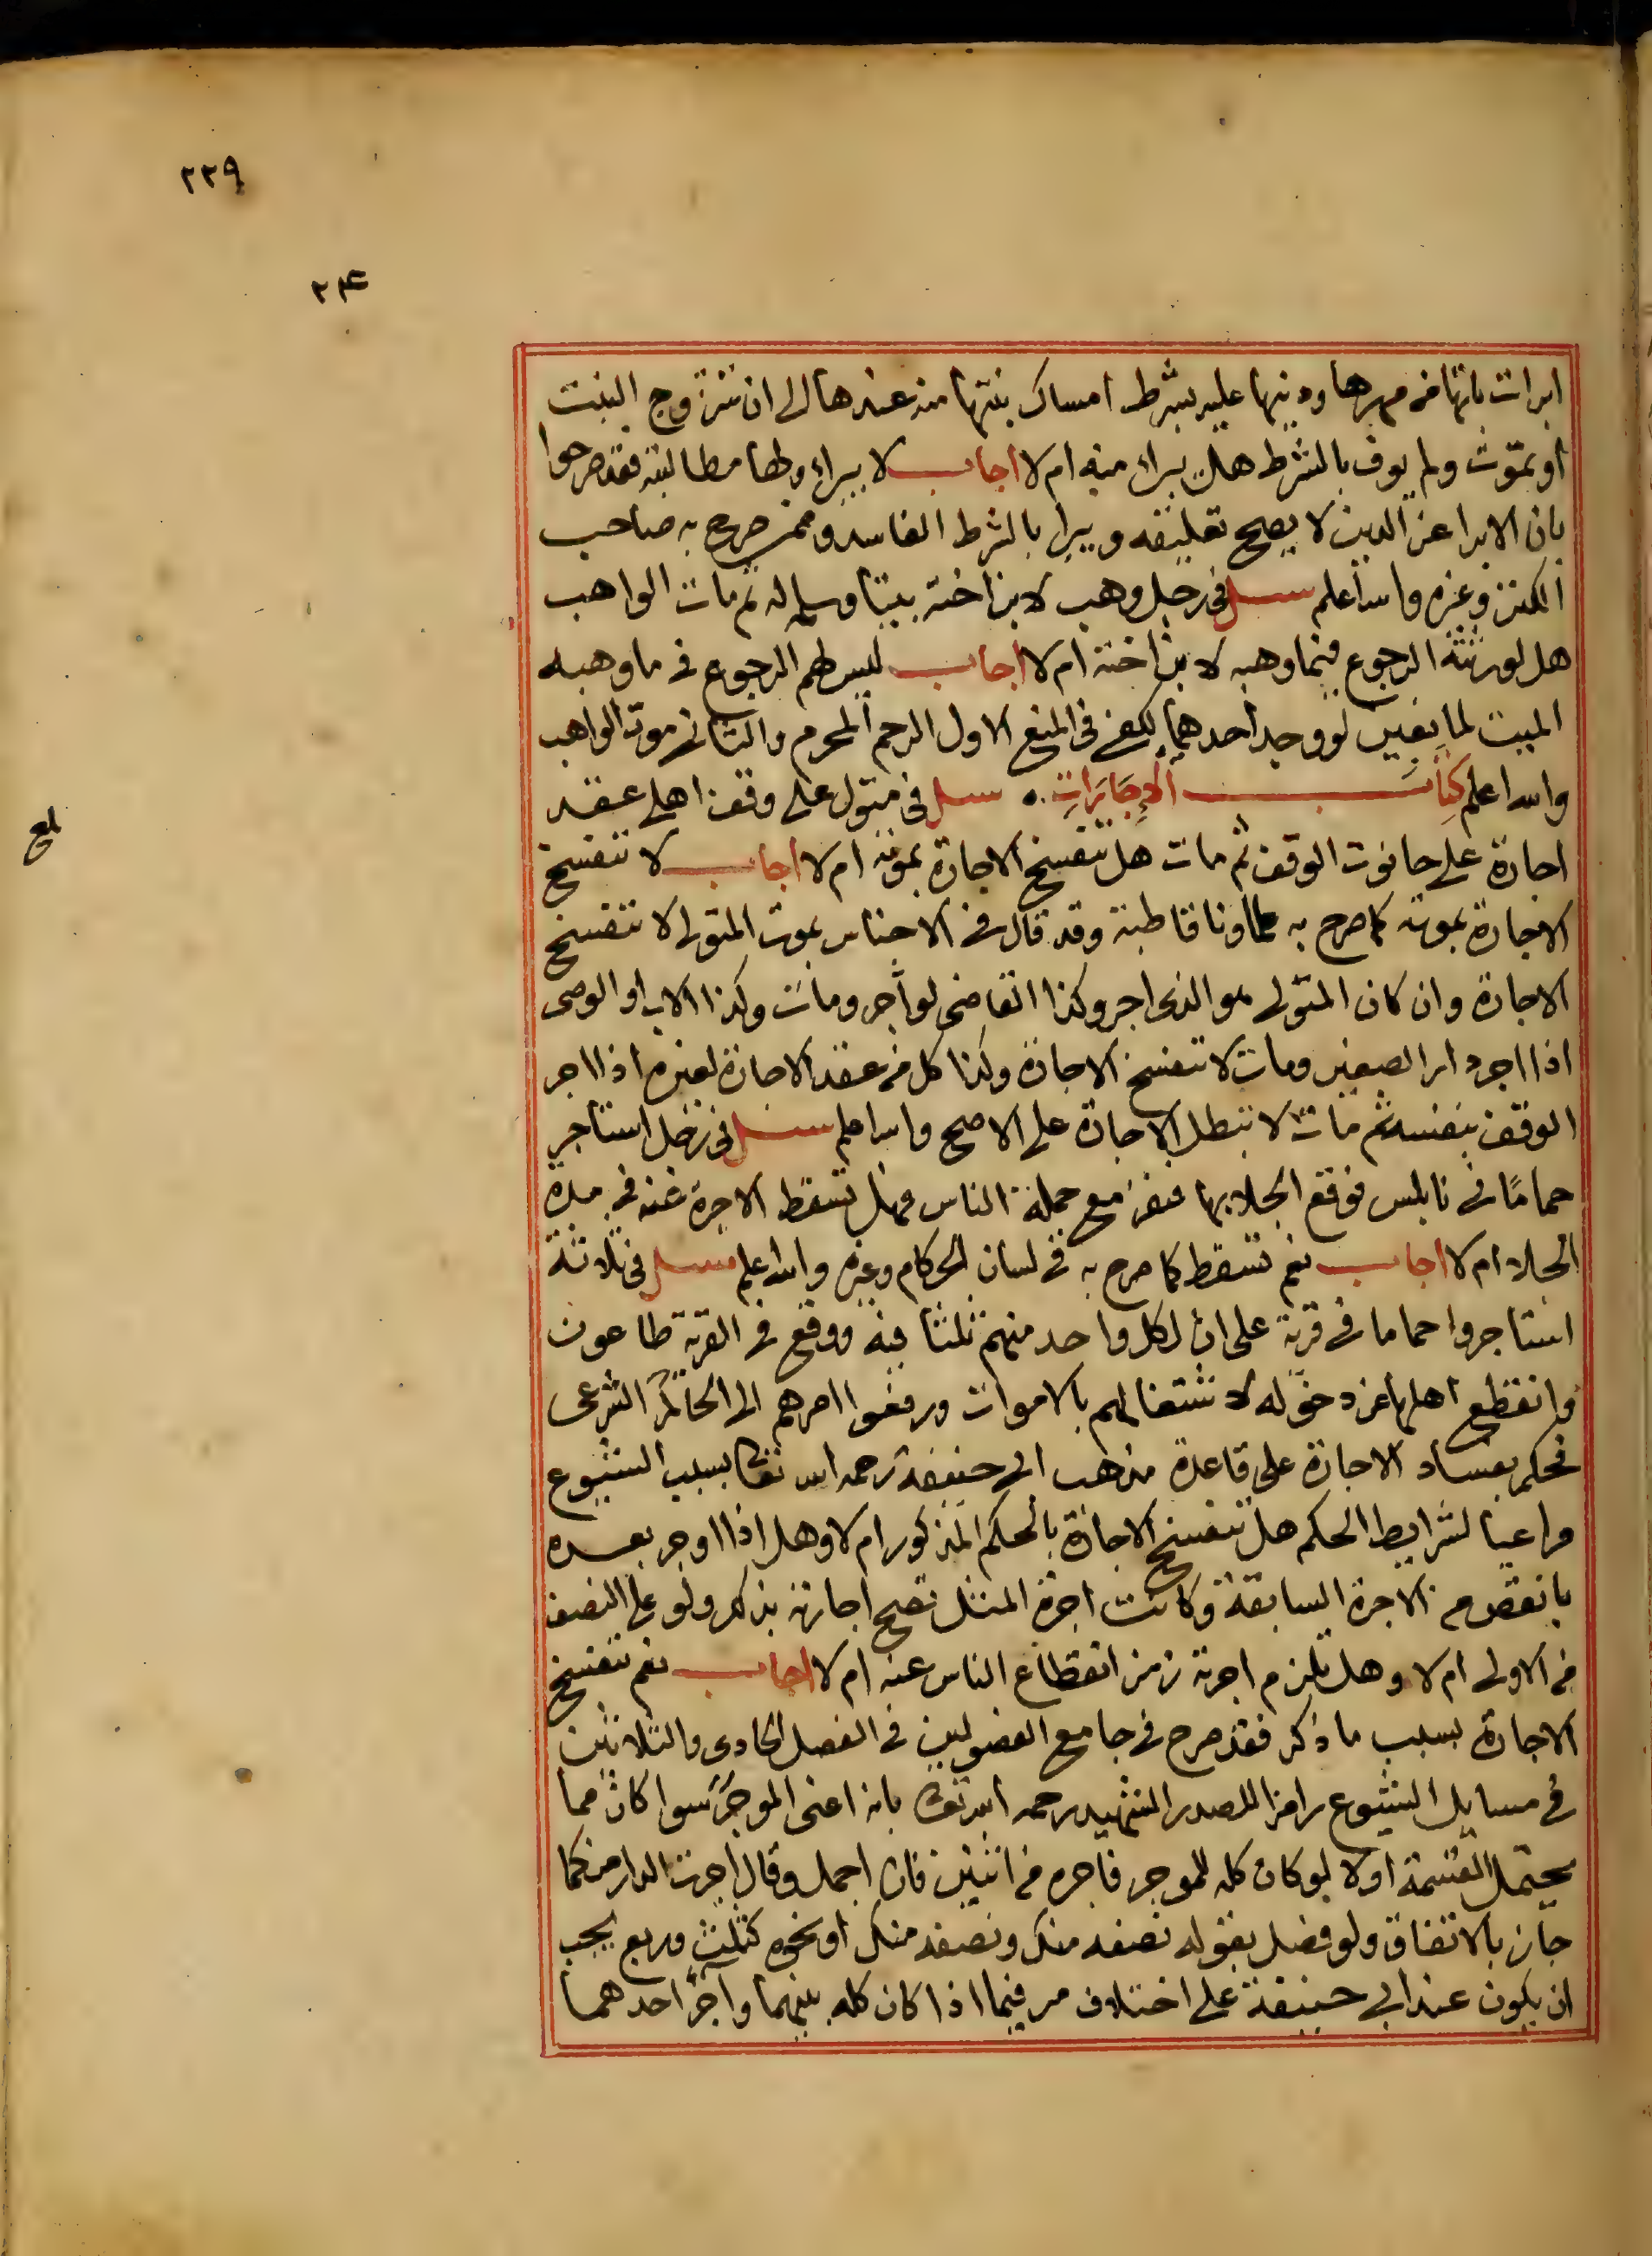 ٢٣٩
٢٣٤
ابرات بانها من مهرها ودينها عليه بشرط امساك بنتها منه عندها الى ان تتزوج البنت
او تموت ولم يوف بالشرط هل يبراء منه ام لا اجاب لا يبراء ولها مطالبته فقد صرحوا
بان الابرا عن الدين لا يصح تعليقه ويبطل بالشرط الفاسد وممن صرح به صاحب
الكنز وغيره والله اعلم سئل في رجل وهب لابن اخته بيتا وسلمه له ثم مات الواهب
هل لورثته الرجوع فيما وهبه لابن اخته ام لا اجاب ليس لهم الرجوع في ما وهبه
الميت لمانعين لو وجد احدهما لكفى في المنع الاول الرحم المحرم والثاني موت الواهب
والله اعلم كتاب الاجارات سئل في متول على وقف اهلي عقد
اجارة على حانوت الوقف ثم مات هل تنفسخ الاجارة بموته ام لا اجاب لا تنفسخ
الاجارة بموته كما صرح به علماؤنا قاطبة وقد قال في الاجناس بموت المتولي لا تنفسخ
الاجارة وان كان المتولي هو الذي اجر وكذا القاضي لو آجر ومات وكذا الاب او الوصي
اذا اجر دار الصغير ومات لا تنفسخ الاجارة وكذا كل من عقد الاجارة لغيره اذا اجر
الوقف بنفسه ثم مات لا تبطل الاجارة على الاصح والله اعلم سئل في رجل استاجر
حماما في نابلس فوقع الجلا بها ففر مع جملة الناس فهل تسقط الاجرة عنه في مدة
الجلاء ام لا اجاب نعم تسقط كما صرح به في لسان الحكام وغيره والله اعلم سئل في ثلاثة
استاجروا حماما في قرية على ان لكل واحد منهم ثلثا فيه ووقع في القرية طاعون
وانقطع اهلها عن دخوله لاشتغالهم بالاموات ورفعوا امرهم الى الحاكم الشرعي
فحكم بفساد الاجارة على قاعدة مذهب ابي حنيفة رحمه الله تعالى بسبب الشيوع
مراعيا لشرايط الحكم هل تنفسخ الاجارة بالحكم المذكور ام لا وهل اذا اوجر بعده
بانقص من الاجرة السابقة وكانت اجرة المثل تصح اجارته بذلك ولو على النصف
من الاولى ام لا وهل تلزم اجرته زمن انقطاع الناس عنه ام لا اجاب نعم تنفسخ
الاجارة بسبب ما ذكر فقد صرح في جامع الفصولين في الفصل الحادي والثلاثين
في مسايل الشيوع رامزا للصدر الشهيد رحمه الله تعالى بانه اعني الموجر سوا كان مما
يحتمل القسمة او لا لو كان كله للموجر فاجره من اثنين فان اجمل وقال اجرت الدار منكما
جاز بالاتفاق ولو فصل بقوله نصفه منك ونصفه منك او نحوه كثلث وربع يجب
ان يكون عند ابي حنيفة على اختلاف مر فيما اذا كان كله بينهما وآجر احدهما